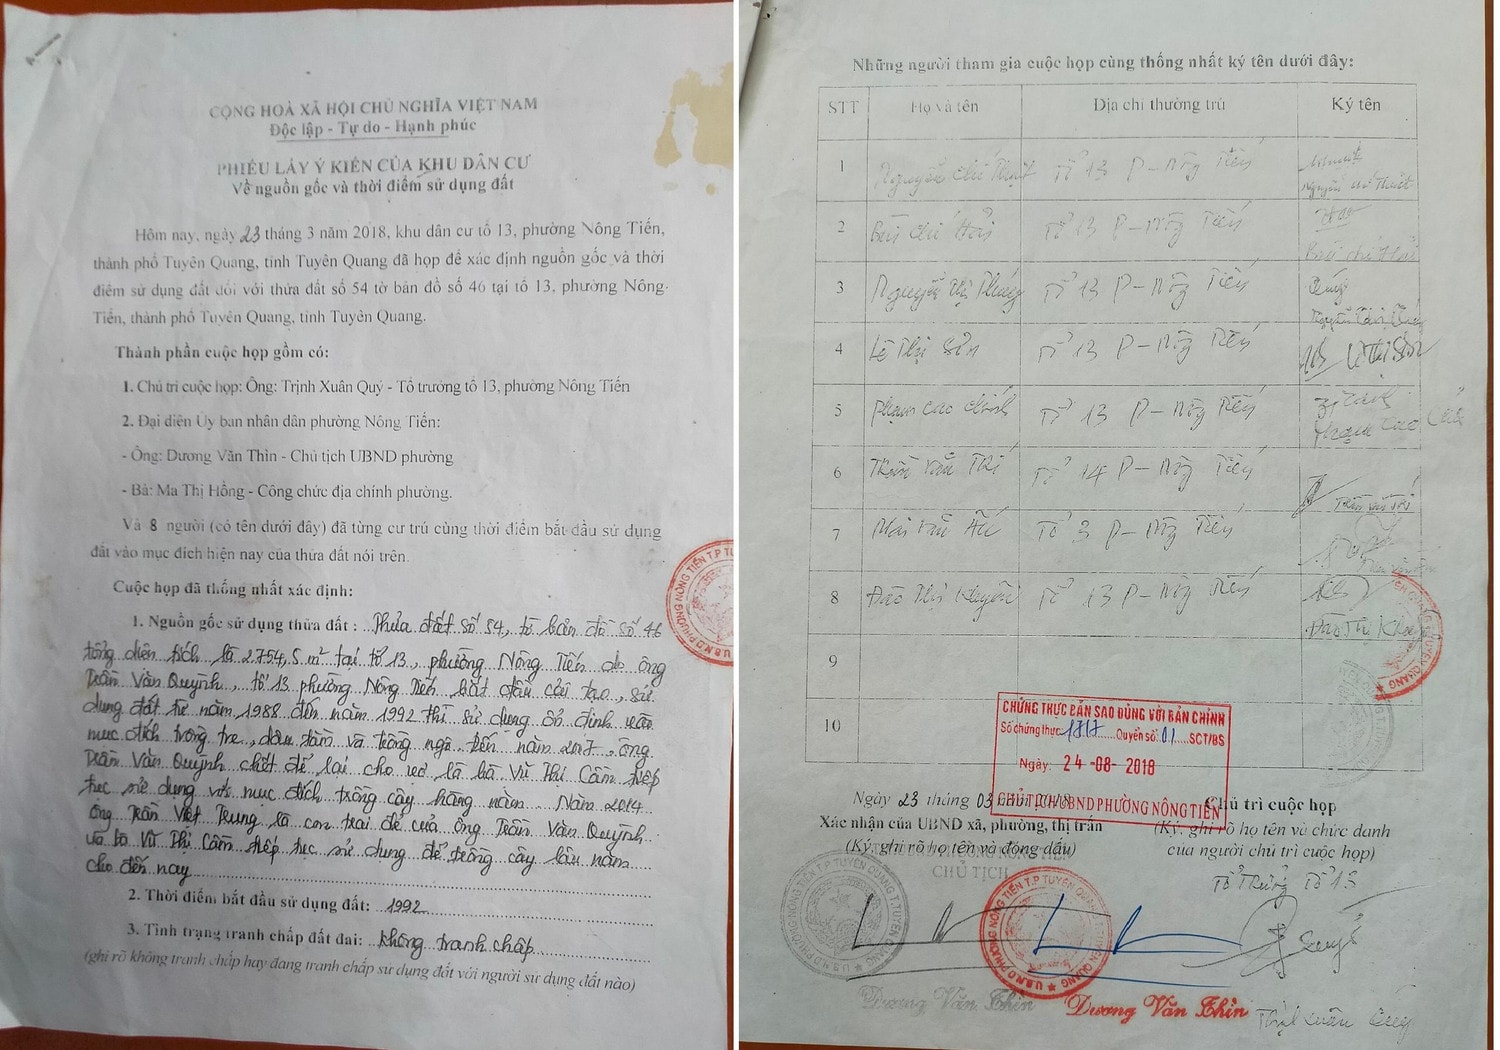 CỘNG HOÀ XÃ HỘI CHỦ NGHĨA VIỆT NAM
Độc lập - Tự do - Hạnh phúc
PHIẾU LẤY Ý KIẾN CỦA KHU DÂN CƯ
Về nguồn gốc và thời điểm sử dụng đất
Hôm nay, ngày 23 tháng 3 năm 2018, khu dân cư tổ 13, phường Nông Tiến,
thành phố Tuyên Quang, tỉnh Tuyên Quang đã họp để xác định nguồn gốc và thời
điểm sử dụng đất đối với thửa đất số 54 tờ bản đồ số 46 tại tổ 13, phường Nông
Tiến, thành phố Tuyên Quang, tỉnh Tuyên Quang.
Thành phần cuộc họp gồm có:
1. Chủ trì cuộc họp: Ông: Trịnh Xuân Quý - Tổ trưởng tổ 13, phường Nông Tiến
2. Đại diện Uỷ ban nhân dân phường Nông Tiến:
- Ông: Dương Văn Thìn - Chủ tịch UBND phường
- Bà: Ma Thị Hồng - Công chức địa chính phường.
Và 8 người (có tên dưới đây) đã từng cư trú cùng thời điểm bắt đầu sử dụng
đất vào mục đích hiện nay của thửa đất nói trên.
Cuộc họp đã thống nhất xác định:
1. Nguồn gốc sử dụng thửa đất : Thửa đất số 54, tờ bản đồ số 46
tổng diện tích là 2754,5 m² tại tổ 13, phường Nông Tiến do ông
Trần Văn Quỳnh, tổ 13 phường Nông Tiến bắt đầu cải tạo, sử
dụng đất từ năm 1988 đến năm 1992 thì sử dụng ổn định vào
mục đích trồng tre, dâu tằm và trồng ngô, đến năm 2007, ông
Trần Văn Quỳnh chết để lại cho vợ là bà Vũ Thị Cầm tiếp
tục sử dụng với mục đích trồng cây hàng năm. Năm 2014
ông Trần Việt Trung là con trai đẻ của ông Trần Văn Quỳnh
và bà Vũ Thị Cầm tiếp tục sử dụng để trồng cây lâu năm
cho đến nay
2. Thời điểm bắt đầu sử dụng đất: 1992
3. Tình trạng tranh chấp đất đai: Không tranh chấp
(ghi rõ không tranh chấp hay đang tranh chấp sử dụng đất với người sử dụng đất nào)
U.B.N.D PHƯỜNG NÔNG TIẾN T.P TUYÊN
Những người tham gia cuộc họp cùng thống nhất ký tên dưới đây:
STT Họ và tên Địa chỉ thường trú Ký tên
1 Nguyễn Chí Thuật Tổ 13 P - Nông Tiến
2 Bùi Chí Hải Tổ 13 P - Nông Tiến
3 Nguyễn Thị Tổ 13 P - Nông Tiến
4 Lê Thị Sơn Tổ 13 P - Nông Tiến Lê Thị Sơn
5 Phạm Cao Tổ 13 P - Nông Tiến Phạm Cao
6 Trần Văn Thi Tổ 14 P - Nông Tiến Trần Văn Thi
7 Mai Văn Tổ 3 P - Nông Tiến
8 Đào Thị Khuyên Tổ 13 P - Nông Tiến Đào Thị
9
10
CHỨNG THỰC BẢN SAO ĐÚNG VỚI BẢN CHÍNH
Số chứng thực: 1817 Quyển số: 01 SCT/BS
Ngày: 24 -08- 2018
CHỦ TỊCH UBND PHƯỜNG NÔNG TIẾN
Ngày 23 tháng 03 năm 2018
Xác nhận của UBND xã, phường, thị trấn
(Ký, ghi rõ họ tên và đóng dấu)
PHƯỜNG NÔNG TIẾN
CHỦ TỊCH
Chủ trì cuộc họp
(Ký, ghi rõ họ tên và chức danh
của người chủ trì cuộc họp)
Tổ Trưởng Tổ 13
U.B.N.D PHƯỜNG NÔNG TIẾN T.P TUYÊN QUANG T.TUYÊN QUANG
U.B.N.D PHƯỜNG NÔNG TIẾN T.P TUYÊN QUANG T.TUYÊN QUANG
Dương Văn Thìn
Dương Văn Thìn
Trịnh Xuân Quý